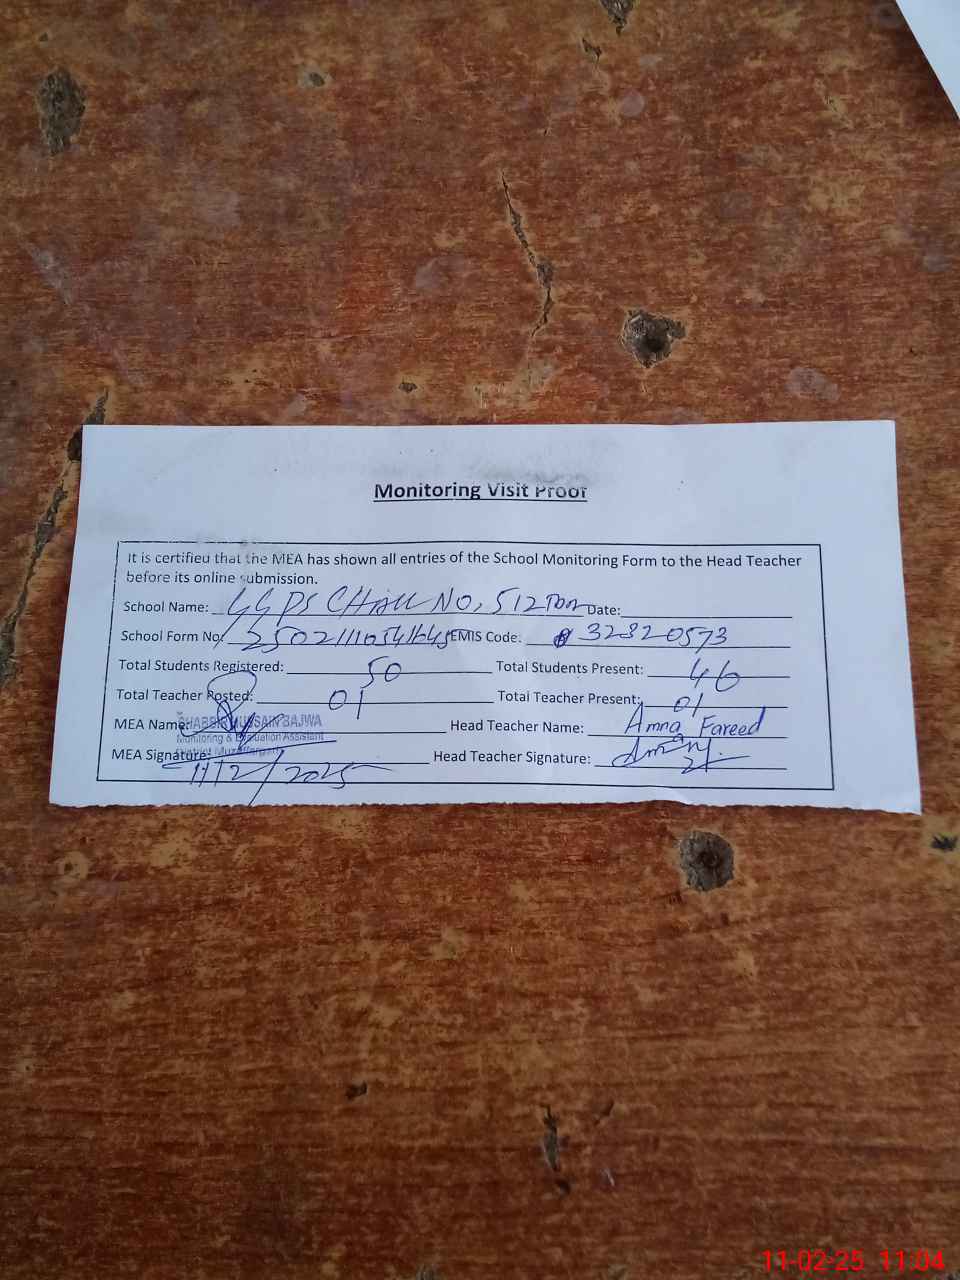 Monitoring Visit Proof
It is certified that the MEA has shown all entries of the School Monitoring Form to the Head Teacher
before its online submission.
School Name: GGPS CHAK NO, 512 TDA Date:
School Form No: EMIS Code: 32320573
Total Students Registered: 50 Total Students Present: 46
Total Teacher Posted: 01 Total Teacher Present: 01
MEA Name: SHABBIR HUSSAIN BAJWA Head Teacher Name: Amna Fareed
Monitoring & Evaluation Assistant
MEA Signature: District Head Teacher Signature:
11/2/2025
11-02-25 11:04